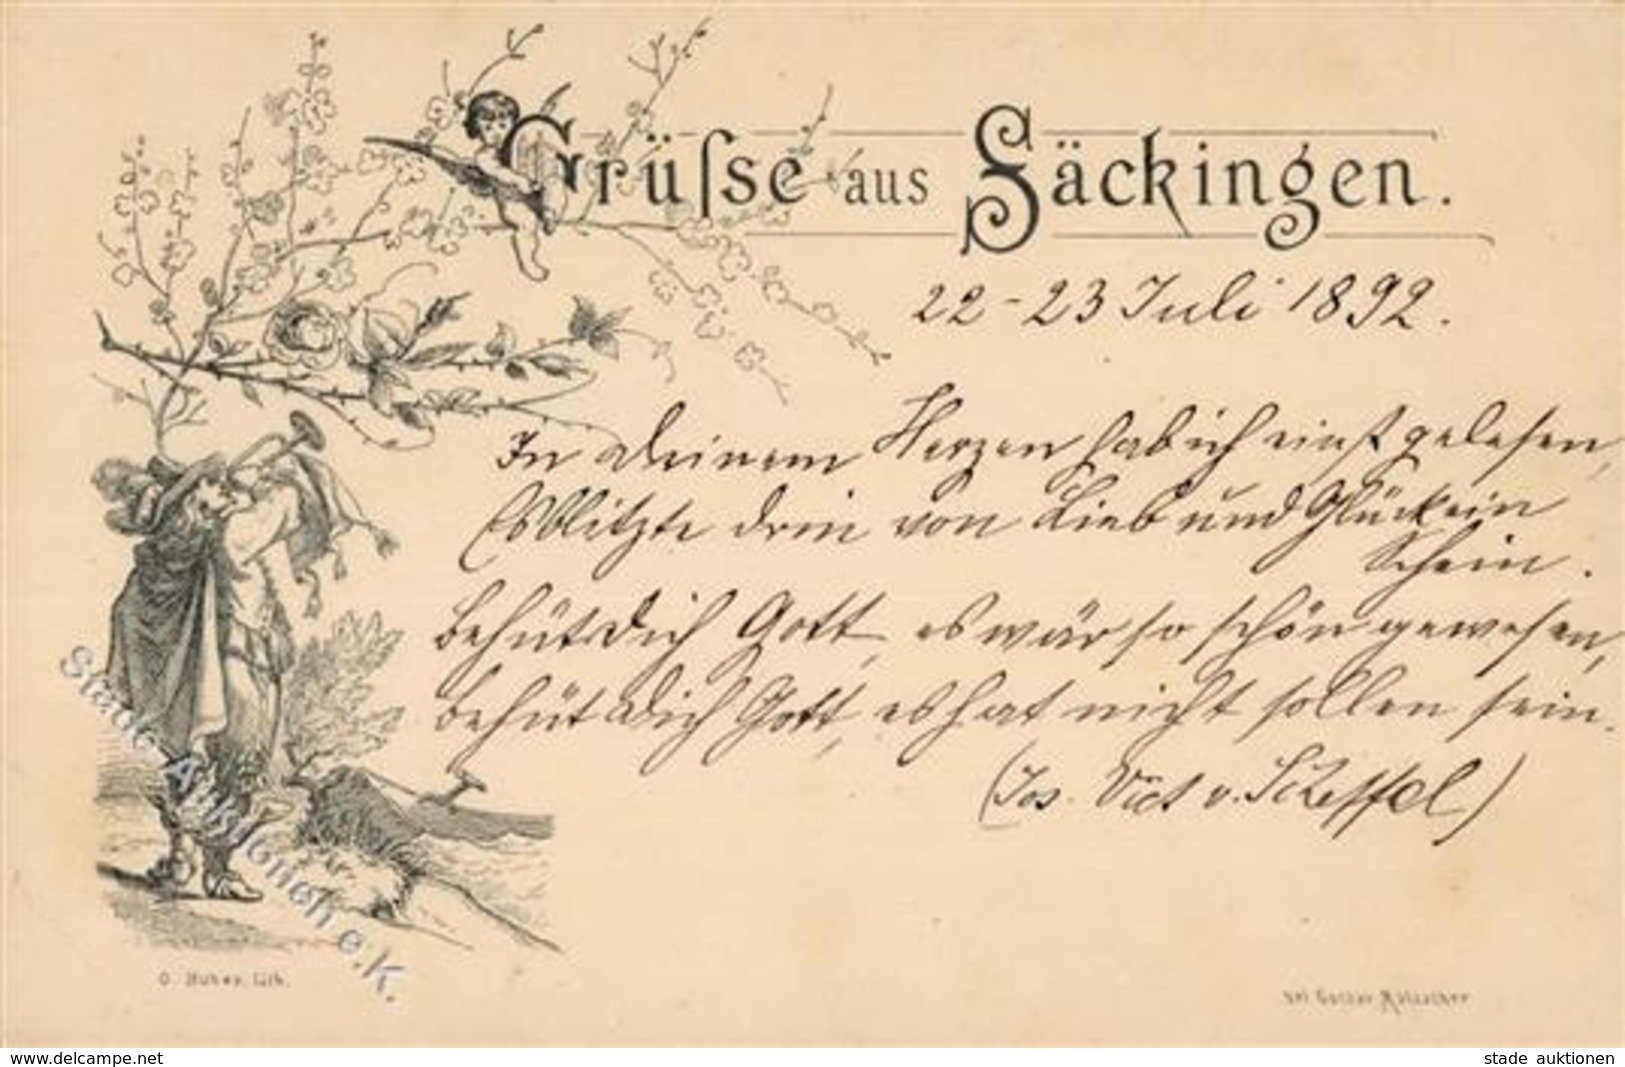 Grüſse aus Säckingen.
22-23 Juli 1892.
In deinem Herzen hab ich einst gelesen,
Es blitzte drin von Lieb und Glück ein
Schein.
Behüt dich Gott, es wär so schön gewesen,
behüt dich Gott, es hat nicht sollen sein.
(Jos. Vict v. Scheffel)
Stade Auktionen e.K.
O. Huber. lith.
bei Gustav
www.delcampe.net
stade auktionen